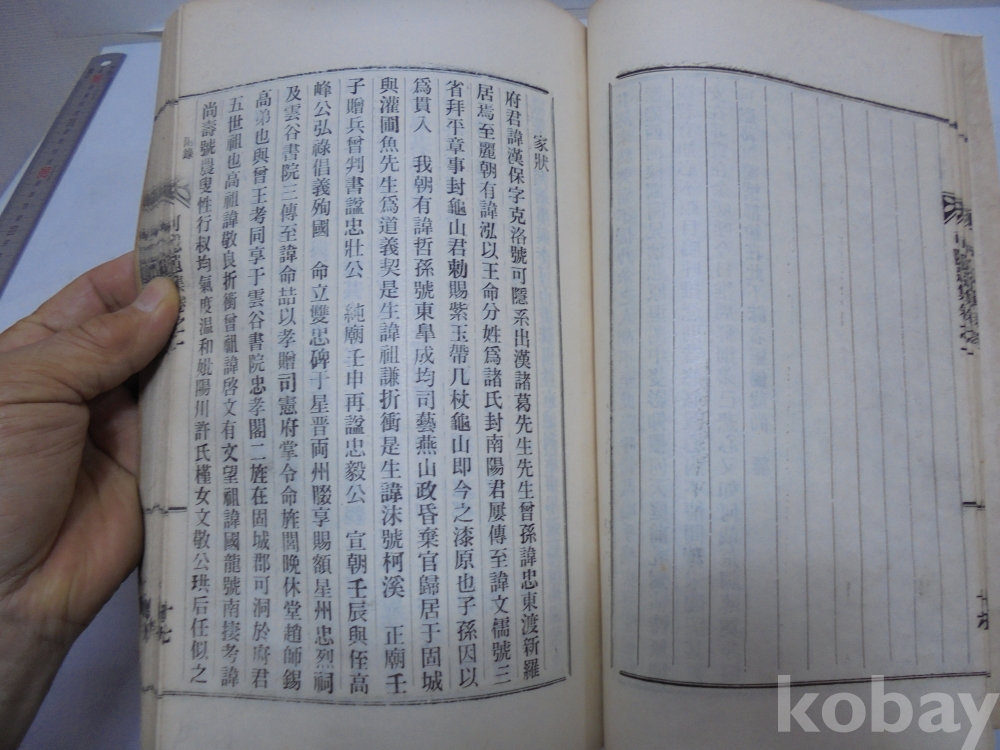 家狀
府君諱漢保字克洛號可隱系出漢諸葛先生先生曾孫諱忠東渡新羅
居焉至麗朝有諱泓以王命分姓爲諸氏封南陽君屢傳至諱文儒號三
省拜平章事封龜山君勅賜紫玉帶几杖龜山即今之漆原也子孫因以
爲貫入 我朝有諱哲孫號東臯成均司藝燕山政昏棄官歸居于固城
與灌圃魚先生爲道義契是生諱祖謙折衝是生諱沫號柯溪 正廟壬
子贈兵曹判書諡忠壯公 純廟壬申再諡忠毅公 宣朝壬辰與侄高
峰公弘祿倡義殉國 命立雙忠碑于星晋両州腏享賜額星州忠烈祠
及雲谷書院三傳至諱命喆以孝贈司憲府掌令命旌閭晩休堂趙師錫
高弟也與曾王考同享于雲谷書院忠孝閣二旌在固城郡可洞於府君
五世祖也高祖諱敬良折衝曾祖諱啓文有文望祖諱國龍號南捿考諱
尚壽號農叟性行叔均氣度温和妣陽川許氏槿女文敬公珙后任似之
附錄
十七
kobay